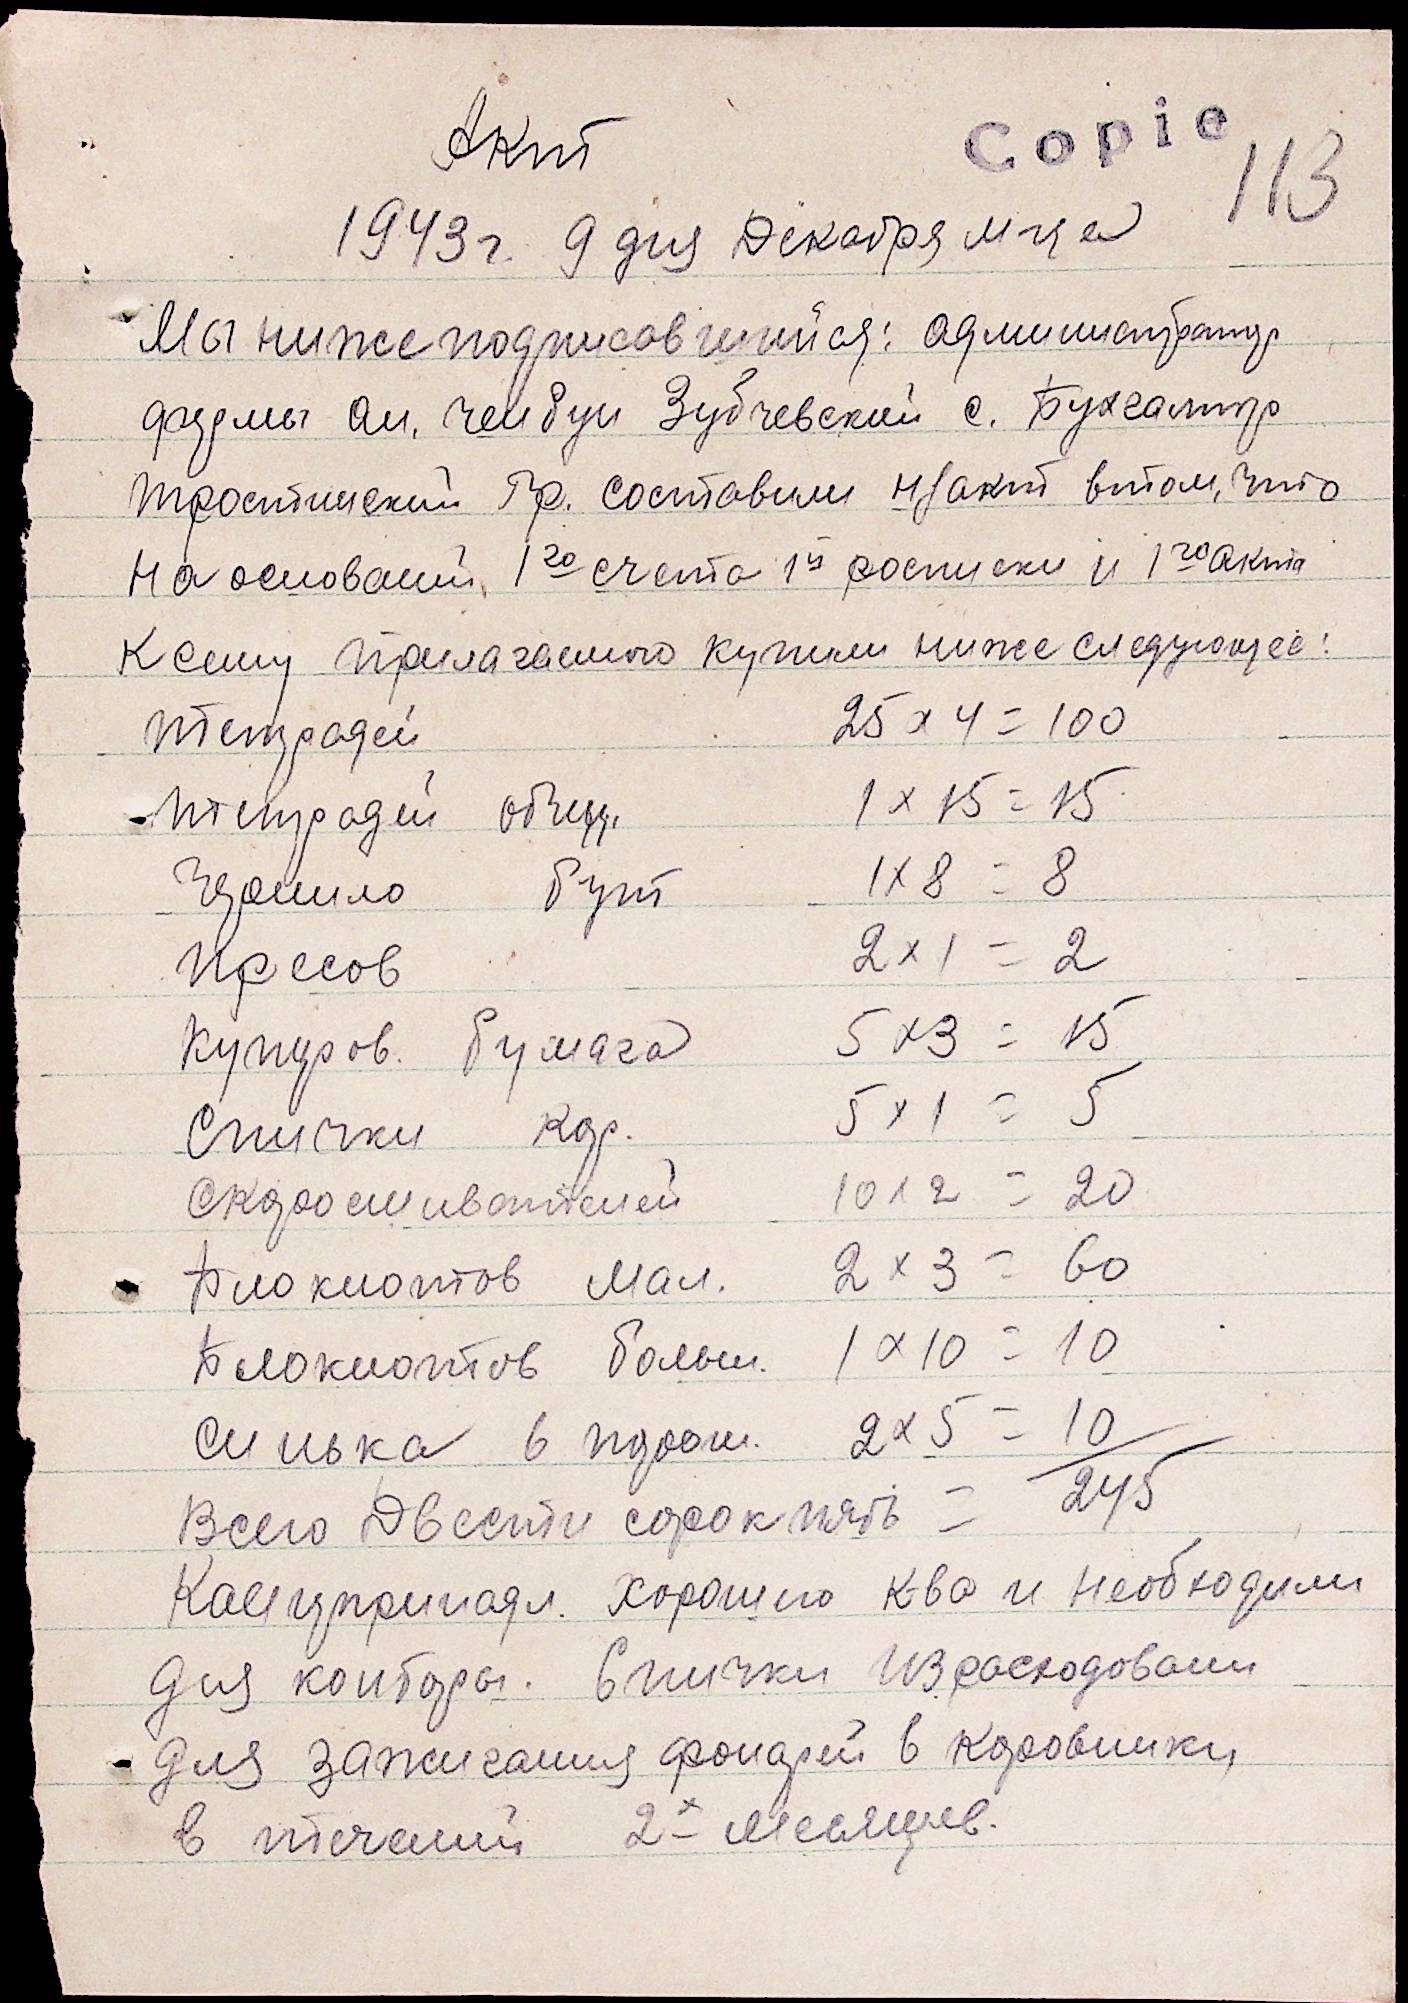 Акт
Copie
113
1943 г. 9 дня Декабря м-ца
Мы нижеподписавшийся: администратор
фермы ак. Чембуи Зубчевский С. Бухгалтер
Тростинский Гр. составили н/акт втом, что
На основаній 1го счета 1й росписки и 1го акта
К сему прилагаемого купили нижеследующее:
Тетрадей 25 х 4 = 100
Тетрадей общ. 1 х 15 = 15
Чернило бут 1 х 8 = 8
Пресов 2 х 1 = 2
Купиров. бумага 5 х 3 = 15
Спички кор. 5 х 1 = 5
Скоросшивателей 10 х 2 = 20
Блокнотов мал. 2 х 3 = 60
Блокнотов больш. 1 х 10 = 10
Синька в порош. 2 х 5 = 10
Всего Двести сорок пять = 245
Канцпринадл. хорошего к-ва и необходими
для конторы. Спички израсходовани
для зажигания фонарей в коровнику
в течений 2х месяцев.